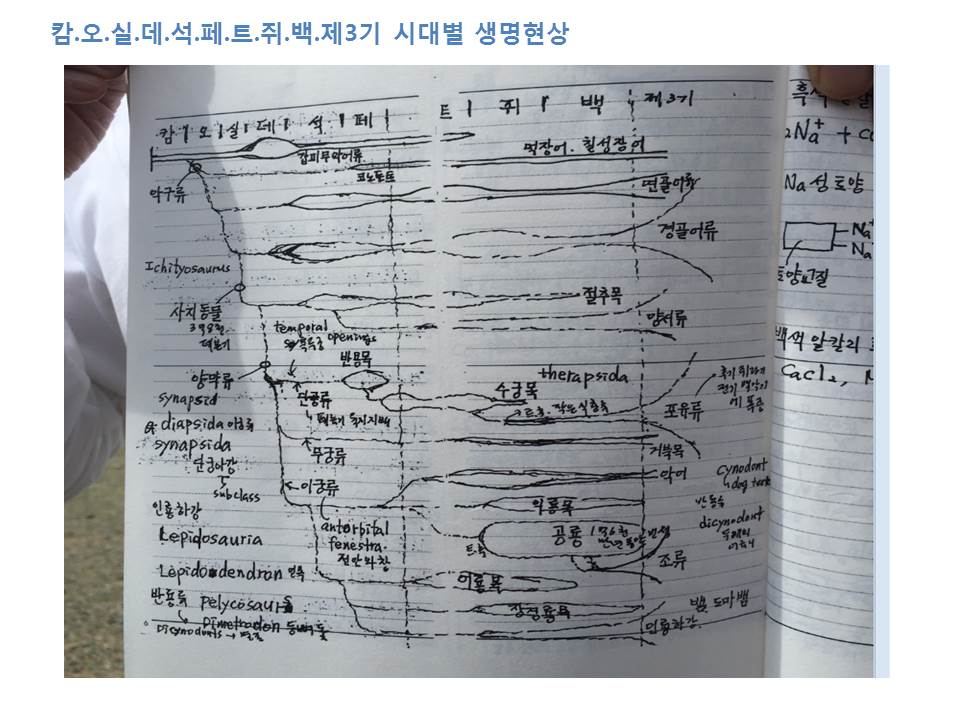 캄.오.실.데.석.페.트.쥐.백.제3기 시대별 생명현상
캄 오 실 데 석 페 트 쥐 백 제3기
갑피무악어류
먹장어. 칠성장어
코노돈트
악구류
연골어류
경골어류
Ichityosaurus
절추목
사지동물
양서류
temporal openings
반룡목
therapsida
양막류
수궁목
synapsid
단궁류
포유류
diapsida 이궁류
synapsida
무궁류
거북목
단궁아강
악어
cynodont
subclass
이궁류
dog teeth
인룡하강
익룡목
antorbital
dicynodont
Lepidosauria
fenestra
공룡
전안와창
트.후
조류
Lepidodendron 인목
어룡목
반룡류 pelycosaurs
장경룡목
뱀 도마뱀
Dimetrodon
인룡하강
Dicynodonts →
흑색
2Na⁺ + 
Na 성 토양
Na⁺
Na
토양교질
백색 알칼리 토
CaCl₂, M